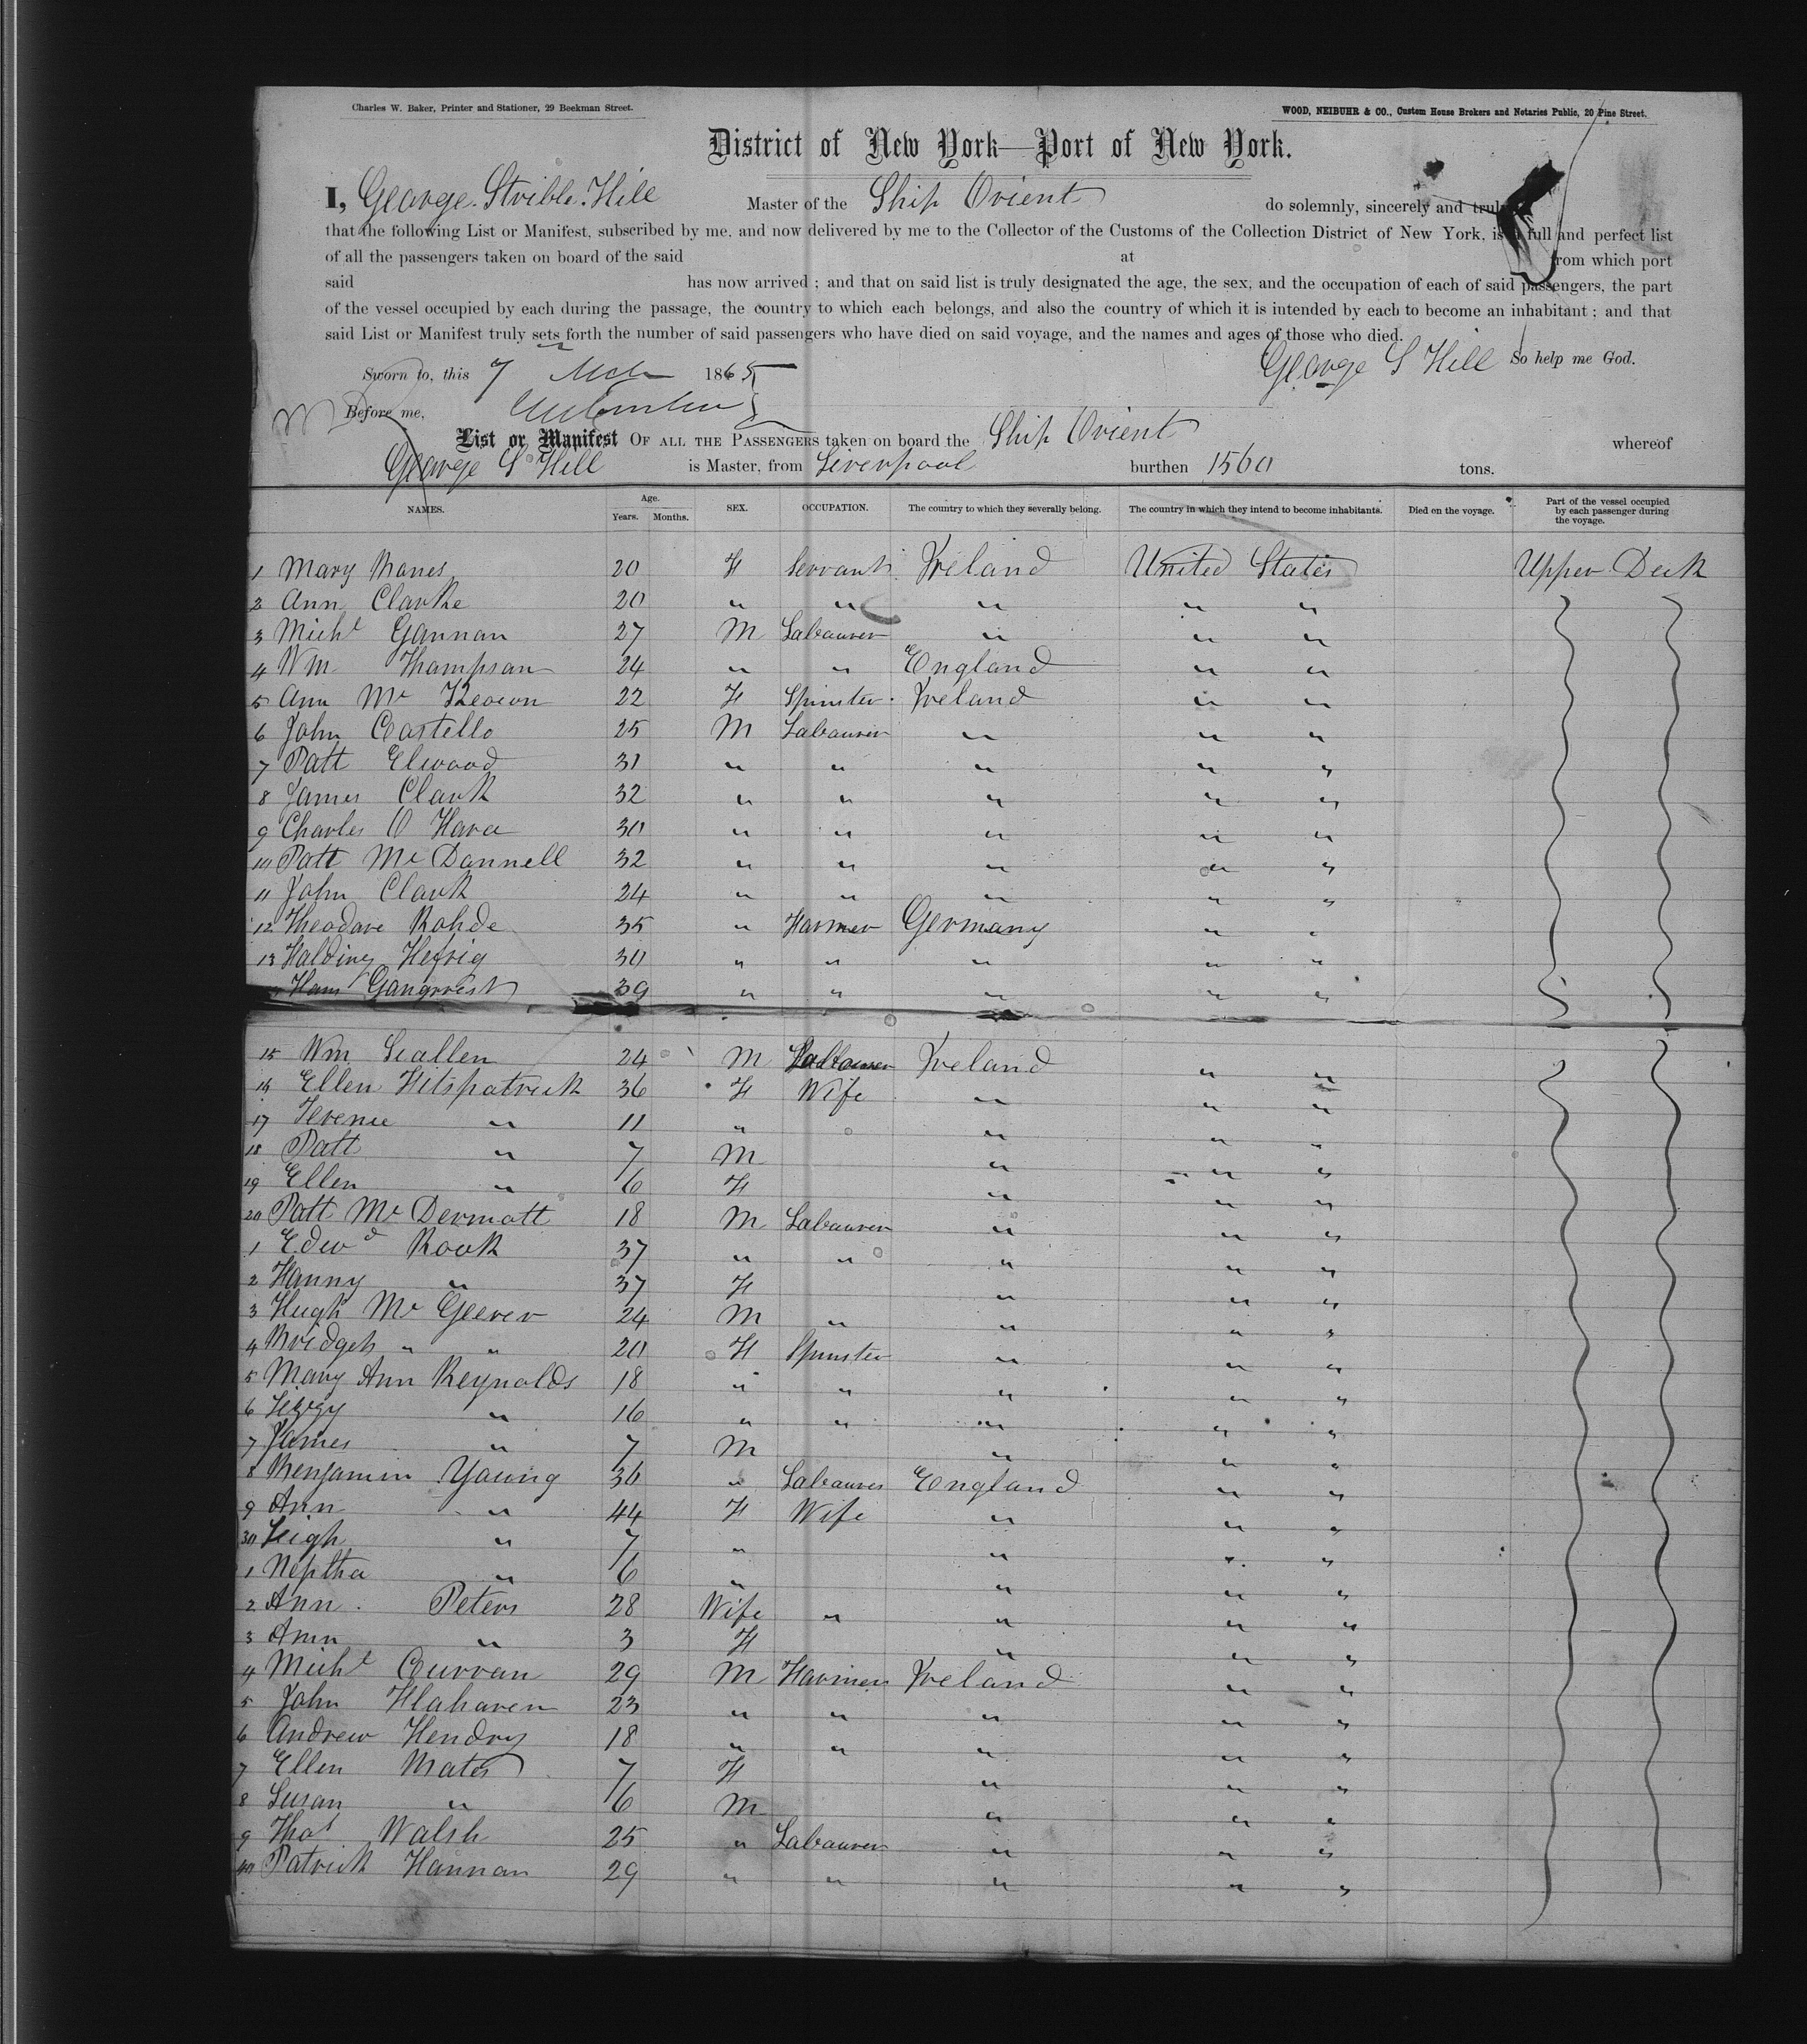 Charles W. Baker, Printer and Stationer, 29 Beekman Street.
WOOD, NEIBUHR & CO., Custom House Brokers and Notaries Public, 20 Pine Street.
District of New York—Port of New York.
I, George Strible Hill Master of the Ship Orient do solemnly, sincerely and truly
that the following List or Manifest, subscribed by me, and now delivered by me to the Collector of the Customs of the Collection District of New York, is a full and perfect list
of all the passengers taken on board of the said at from which port
said has now arrived; and that on said list is truly designated the age, the sex, and the occupation of each of said passengers, the part
of the vessel occupied by each during the passage, the country to which each belongs, and also the country of which it is intended by each to become an inhabitant; and that
said List or Manifest truly sets forth the number of said passengers who have died on said voyage, and the names and ages of those who died.
George S Hill So help me God.
Sworn to, this 7 Mch 1865
Before me,
List or Manifest OF ALL THE PASSENGERS taken on board the Ship Orient whereof
George S Hill is Master, from Liverpool burthen 1560 tons.
NAMES. Age. Years. Months. SEX. OCCUPATION. The country to which they severally belong. The country in which they intend to become inhabitants. Died on the voyage. Part of the vessel occupied by each passenger during the voyage.
1 Mary 20 F Servant Ireland United States Upper Deck
2 Ann Clarke 20 " " " " "
3 Michl Gannon 27 M Labourer " " "
4 Wm Thompson 24 " " England " "
5 Ann Mc Keown 22 F Spinster Ireland " "
6 John Costello 25 M Labourer " " "
7 Patt Elwood 31 " " " " "
8 James Clark 32 " " " " "
9 Charles O Hara 30 " " " " "
10 Patt Mc Donnell 32 " " " " "
11 John Clark 24 " " " " "
12 Theodore Rohde 35 " Farmer Germany " "
13 Halding Hefrig 30 " " " " "
Hans 39 " " " " "
15 Wm Scallen 24 M Labourer Ireland " "
16 Ellen Fitspatrick 36 F Wife " " "
17 Terence " 11 " " " "
18 Patt " 7 M " " "
19 Ellen " 6 F " " "
20 Patt Mc Dermott 18 M Labourer " " "
1 Edwd Rook 37 " " " " "
2 Fanny " 37 F " " "
3 Hugh Mc Geever 24 M " " " "
4 Bridget " " 20 F Spinster " " "
5 Mary Ann Reynolds 18 " " " " "
6 Lizzy " 16 " " " " "
7 James " 7 M " " "
8 Benjamin Young 36 " Labourer England " "
9 Ann " 44 F Wife " " "
30 Leigh " 7 " " " "
1 Neptha " 6 " " " "
2 Ann Peters 28 Wife " " " "
3 Ann " 3 F " " "
4 Michl Curran 29 M Farmer Ireland " "
5 John Flaharen 23 " " " " "
6 Andrew Hendry 18 " " " " "
7 Ellen Mates 7 F " " "
8 Susan " 6 M " " "
9 Thos Walsh 25 " Labourer " " "
40 Patrick Hannan 29 " " " " "